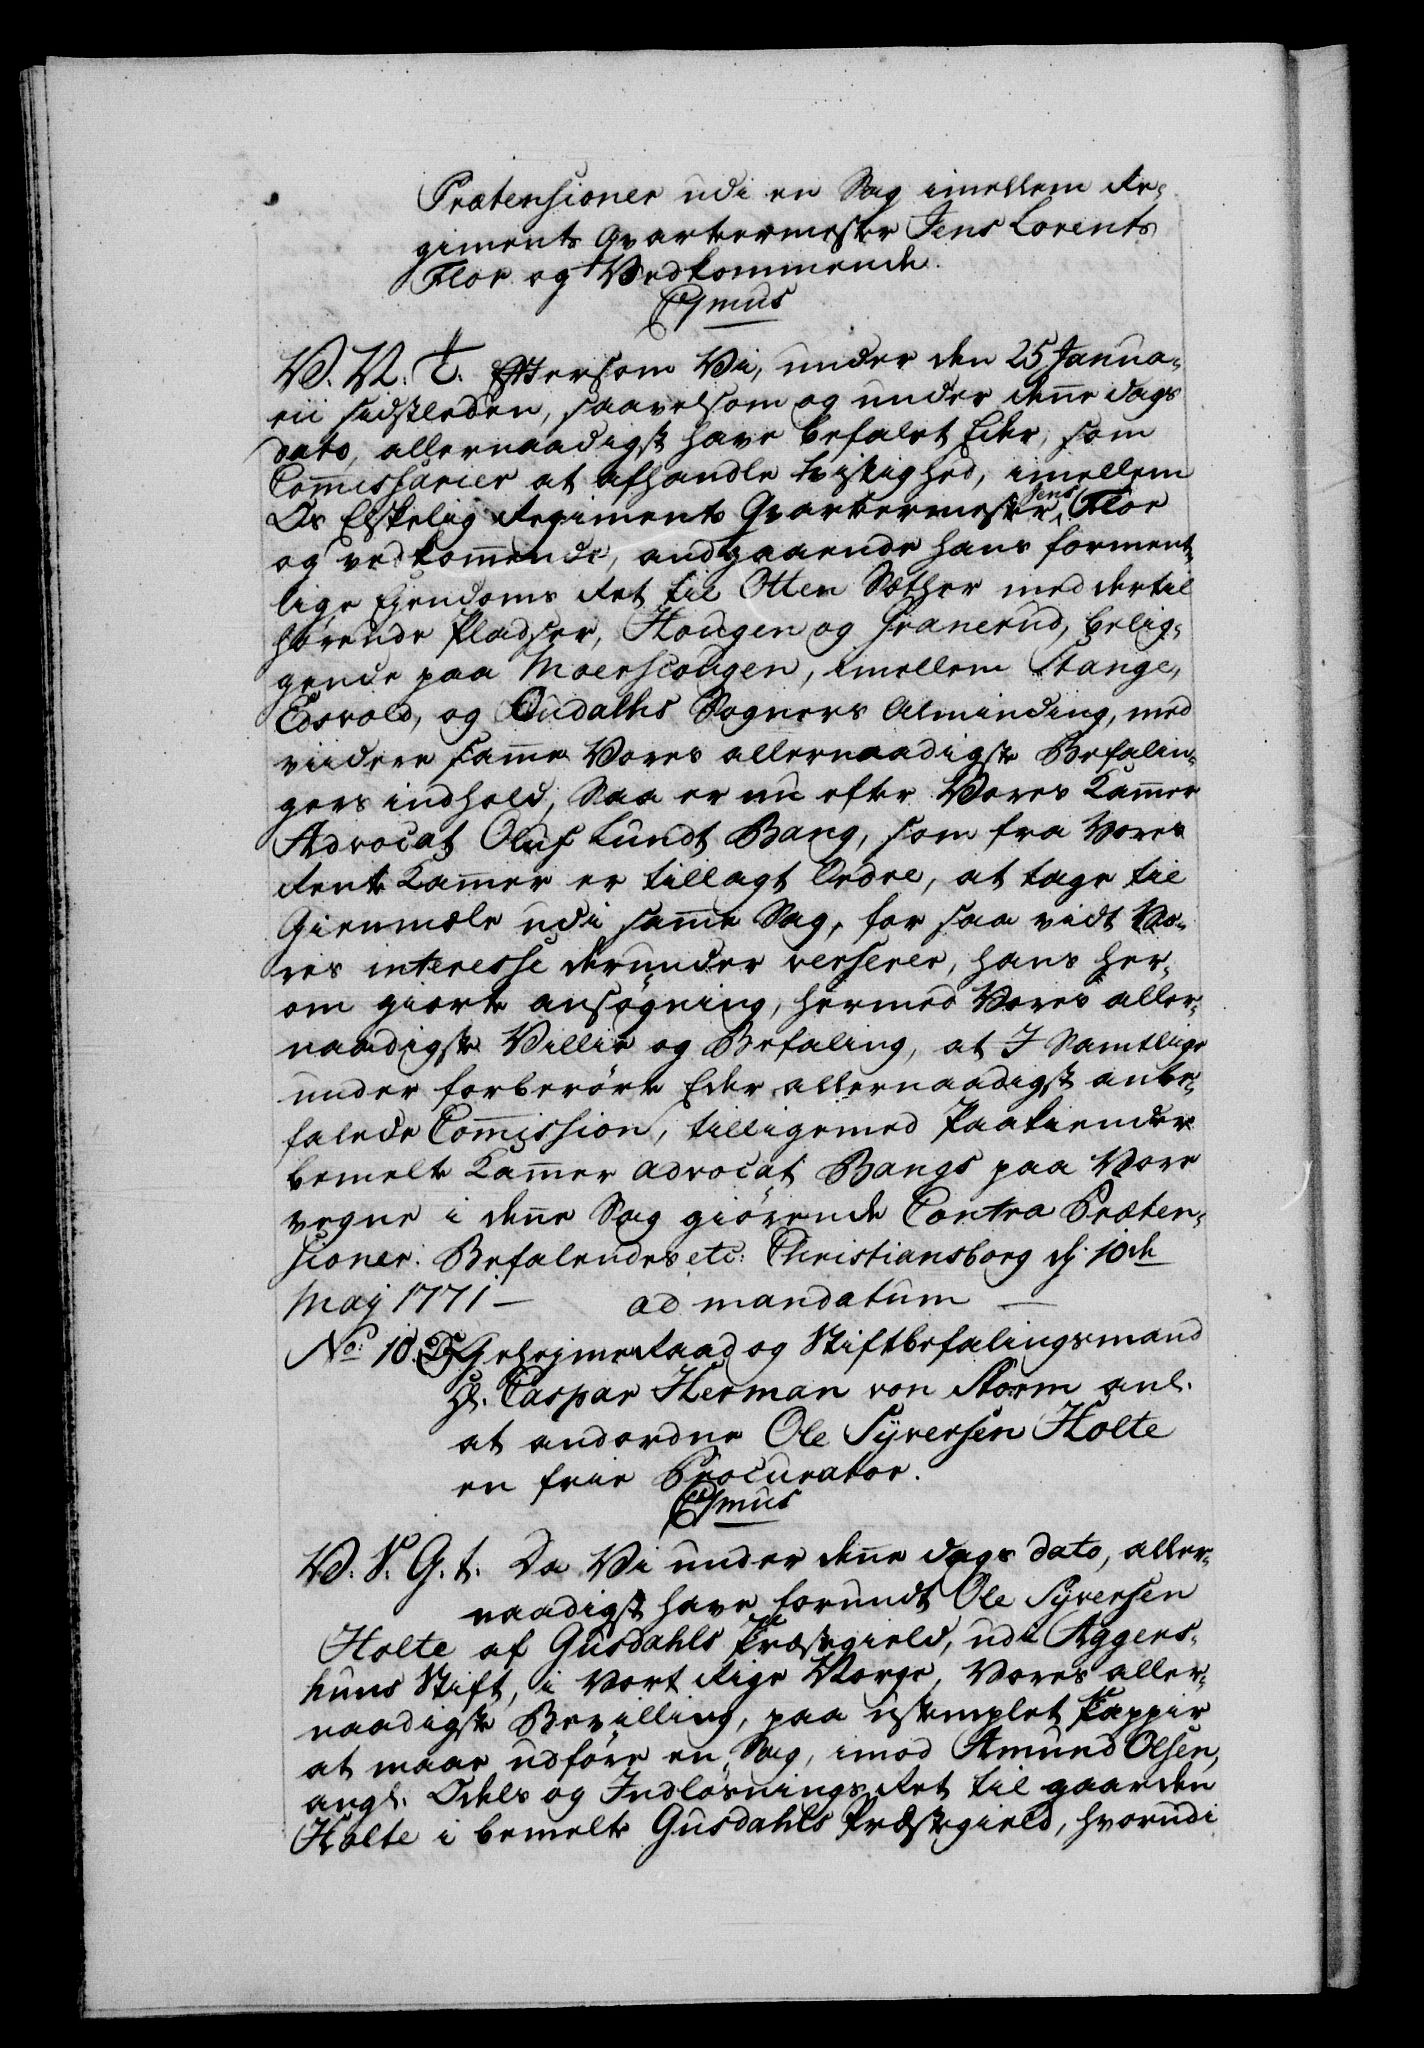 Prætensioner udi en Sag imellem Re¬
giments Qvarteermester Jens Lorents
Flor og Vedkommende.
V. V. T. Eftersom Vi, under den 25 Janua¬
rii sidstleden, saavelsom og under denne dags
dato, allernaadigst have befalet Eder, som
Commissarier at afhandle tvistighed, imellem
Os Elskelig Regiments Qvarteermester Jens Flor
og vedkommende, andgaaende hans forment¬
lige Ejendoms Ret til Otter Sæther med dertil
hørende Pladser, Hougen og Granerud, belig¬
gende paa Moerscougen, imellem Stange,
Edsvold, og Oudalhs Sogners Alminding, med
viidere samme Vores allernaadigste Befalin¬
gers indhold; Saa er nu efter Vores Kammer
Advocat Oluf Lundt Bang, som fra Vores
Rente Kammer er tillagt Ordre, at tage til
Gienmæle udi samme Sag, for saa vidt Vo¬
res interesse derunder verserer, hans her¬
om giorte ansøgning, hermed Vores aller¬
naadigste Villie og Befaling, at I Samtlige
under forberørte Eder allernaadigst anbe¬
falede Commission, tilligemed paakiender
bemelte Kammer advocat Bangs paa Vore
vegne i denne Sag giørende Contra Præten¬
sioner. Befalendes etc: Christiansborg d. 10de
Maj 1771 — ad mandatum —
No: 10. Gehejmeraad og Stiftbefalingsmand
Hr. Caspar Herman von Storm anl.
at andordne Ole Syversen Holte
en frie Procurator.
V. S. G. t. Da Vi under denne dags dato, aller¬
naadigst have forundt Ole Syversen
Holte af Gusdahls Præstegield, udi Aggers¬
huus Stift, i Vort Rige Norge, Vores aller¬
naadigste Bevilling, paa ustemplet Pappir
at maae udføre en Sag, imod Amund Olsen,
angl. Odels og Indløsnings Ret til gaarden
Holte i bemelte Gusdahls Præstegield, hvorudi